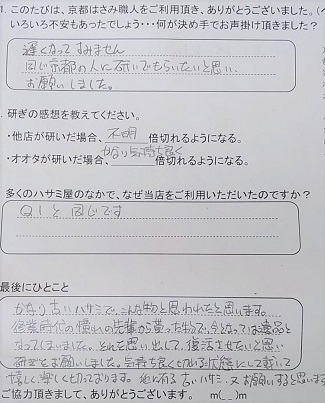 1. このたびは、京都はさみ職人をご利用頂き、ありがとうございました。(
いろいろ不安もあったでしょう・・・何が決め手でお声掛け頂きました?
遅くなってすみません
同じ京都の人に研いでもらいたいと思い
お願いしました。
研ぎの感想を教えてください。
・他店が研いだ場合、不明 倍切れるようになる。
・オオタが研いだ場合、かなり気持ち良く 倍切れるようになる。
多くのハサミ屋のなかで、なぜ当店をご利用いただいたのですか?
Q1と同じです
最後にひとこと
かなり古いハサミで、こんな物と思われたと思います。
修業時代の憧れの先輩から貰った物で、今となっては遺品と
なってしまいました。それを思い出して、復活させたいと思い
研ぎをお願いしました。気持ち良く切れる状態にして戴いて
嬉しく楽しく切っております。他に有る古いハサミ、又お願いすると思います
ご協力頂きまして、ありがとうございます。 m(__)m